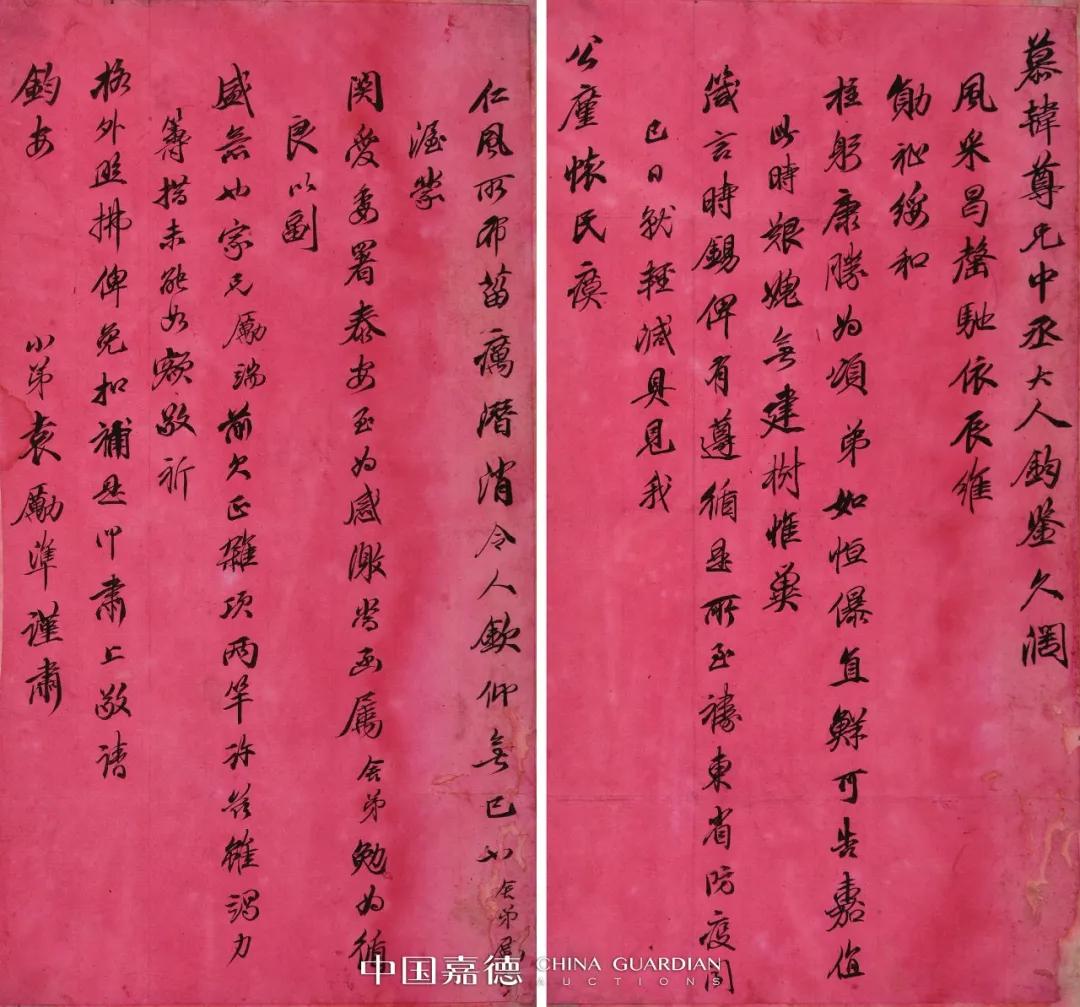 慕韓尊兄中丞大人鈞鑒久闊
風采曷罄馳依辰維
勛祉綏和
柱躬康勝為頌弟如恒儤直鮮可告嘉值
此時艱媿無建樹惟冀
箴言時錫俾有遵循是所至禱東省防疫聞
已日就輕減具見我
公廑懷民瘼
仁風所布菑癘潛消令人欽仰無已如舍弟勵
渥蒙
關愛委署泰安至為感激當函屬舍弟勉為循
良以副
盛意也家兄勵端前欠正雜項兩竿許茲雖竭力
籌措未能如額敬祈
格外照拂俾免扣補是叩肅上敬請
鈞安
小弟袁勵準謹肅
中国嘉德 CHINA GUARDIAN AUCTIONS